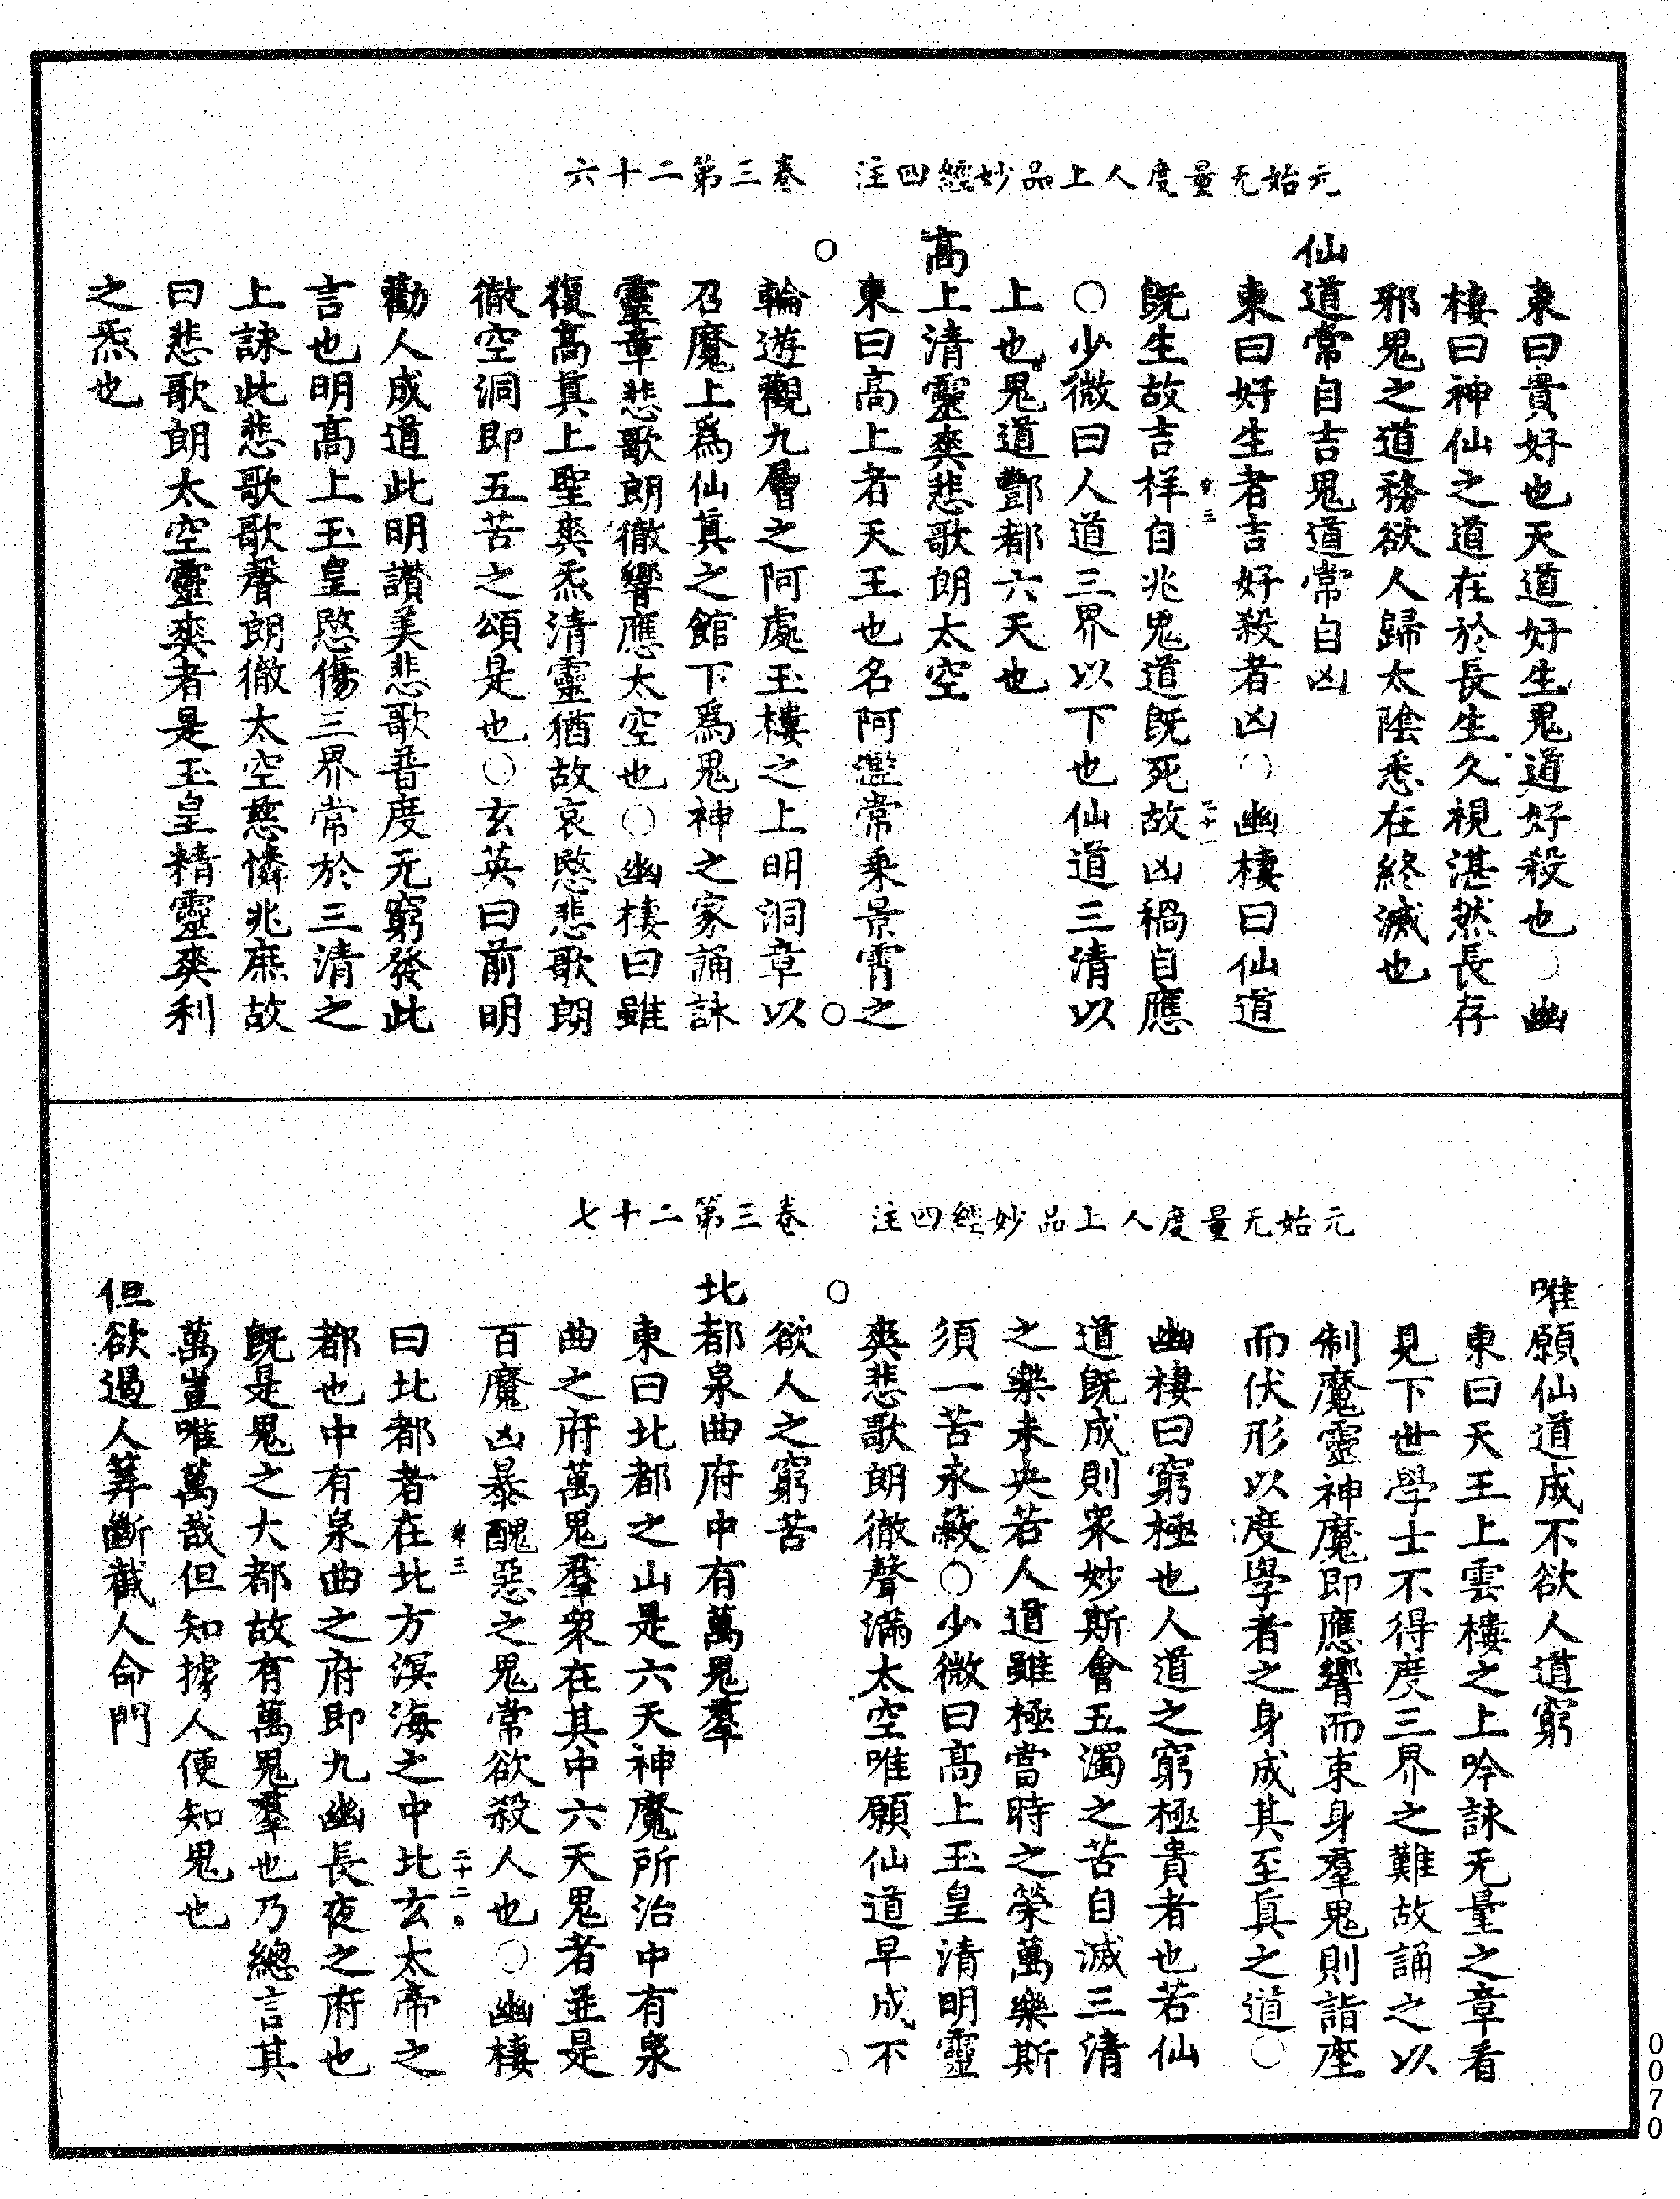 元始无量度人上品妙經四註　卷三第二十六
東曰貴好也天道好生鬼道好殺也○幽
棲曰神仙之道在於長生久視湛然長存
邪鬼之道務欲人歸太陰悉在終滅也
仙道常自吉鬼道常自凶
東曰好生者吉好殺者凶○幽棲曰仙道
既生故吉祥自兆鬼道既死故凶禍自應
○少微曰人道三界以下也仙道三清以
上也鬼道酆都六天也
高上清靈爽悲歌朗太空
東曰高上者天王也名阿濫常乘景霄之
輪遊觀九層之阿處玉樓之上明洞章以
召魔上爲仙真之館下爲鬼神之家誦詠
靈章悲歌朗徹響應太空也○幽棲曰雖
復高真上聖爽炁清靈猶故哀愍悲歌朗
徹空洞即五苦之頌是也○玄英曰前明
勸人成道此明讚美悲歌普度无窮發此
言也明高上玉皇愍傷三界常於三清之
上詠此悲歌歌聲朗徹太空慈憐兆庶故
曰悲歌朗太空靈爽者是玉皇精靈爽利
之炁也
元始无量度人上品妙經四註　卷三第二十七
唯願仙道成不欲人道窮
東曰天王上雲樓之上吟詠无量之章看
見下世學士不得度三界之難故誦之以
制魔靈神魔即應響而束身羣鬼則詣座
而伏形以度學者之身成其至真之道○
幽棲曰窮極也人道之窮極貴者也若仙
道既成則衆妙斯會五濁之苦自滅三清
之樂未央若人道雖極當時之榮萬樂斯
須一苦永蔽○少微曰高上玉皇清明靈
爽悲歌朗徹聲滿太空唯願仙道早成不
欲人之窮苦
北都泉曲府中有萬鬼羣
東曰北都之山是六天神魔所治中有泉
曲之府萬鬼羣衆在其中六天鬼者並是
百魔凶暴醜惡之鬼常欲殺人也○幽棲
曰北都者在北方溟海之中北玄太帝之
都也中有泉曲之府即九幽長夜之府也
既是鬼之大都故有萬鬼羣也乃總言其
萬豈唯萬哉但知據人便知鬼也
但欲遏人筭斷截人命門
0070